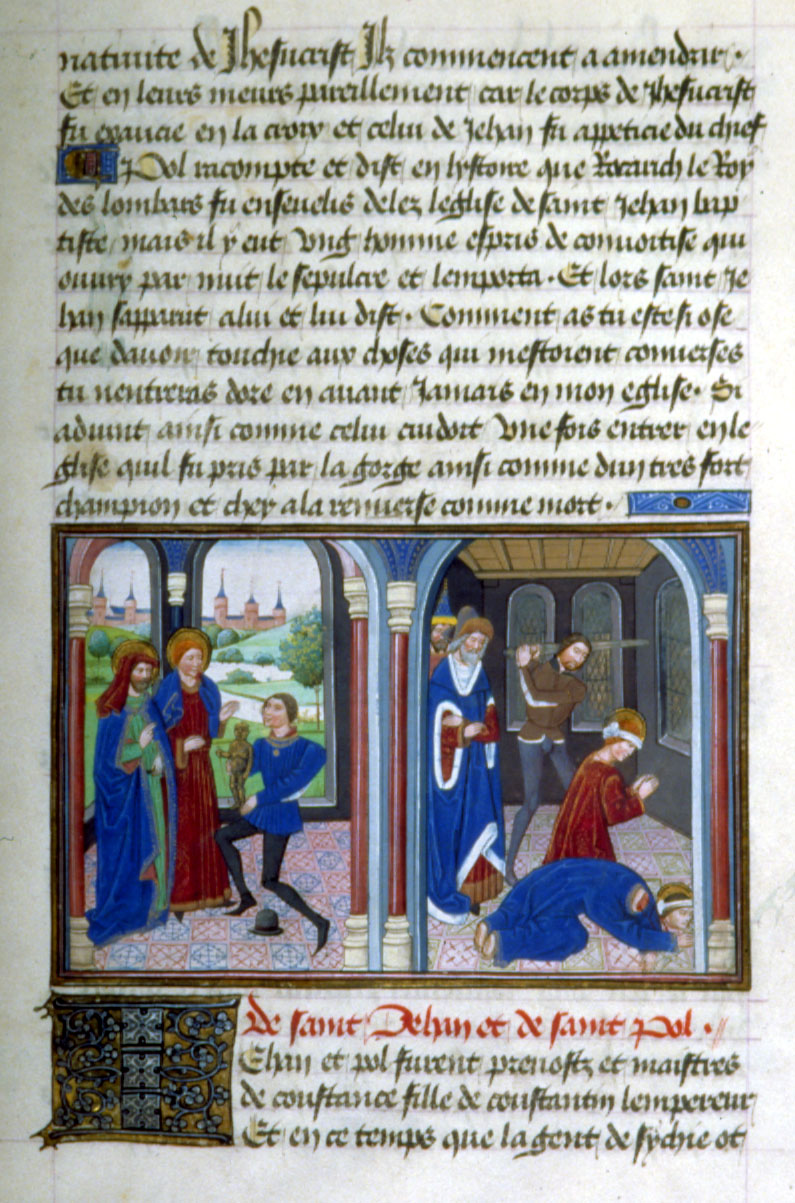 natiuite de Jhesucrist Jlz commencent a amendrir.
Et en leurs meurs pareillement car le corps de Jhesucrist
fu exaucie en la croix et celui de Jehan fu appeticie du chief
Pol racompte et dist en lystoire que Rocarich le Roy
des lombars fu enseuelis delez leglise de saint Jehan bap
tiste, mais il y eut vng homme espris de conuoitise qui
ouury par nuit le sepulcre et lemporta. Et lors saint Je
han sapparut a lui et lui dist. Comment as tu este si ose
que dauoir touchie aux choses qui mestoient commises
tu nentreras dore en auant Jamais en mon eglise. Si
aduint ainsi comme celui cuidoit vne fois entrer en le
glise quil fu pris par la gorge ainsi comme dun tres fort
champion et chey a la renuerse comme mort.
De saint Jehan et de saint Pol.
Ehan et pol furent preuostz et maistres
de constance fille de constantin lempereur
Et en ce temps que la gent de sychie ot